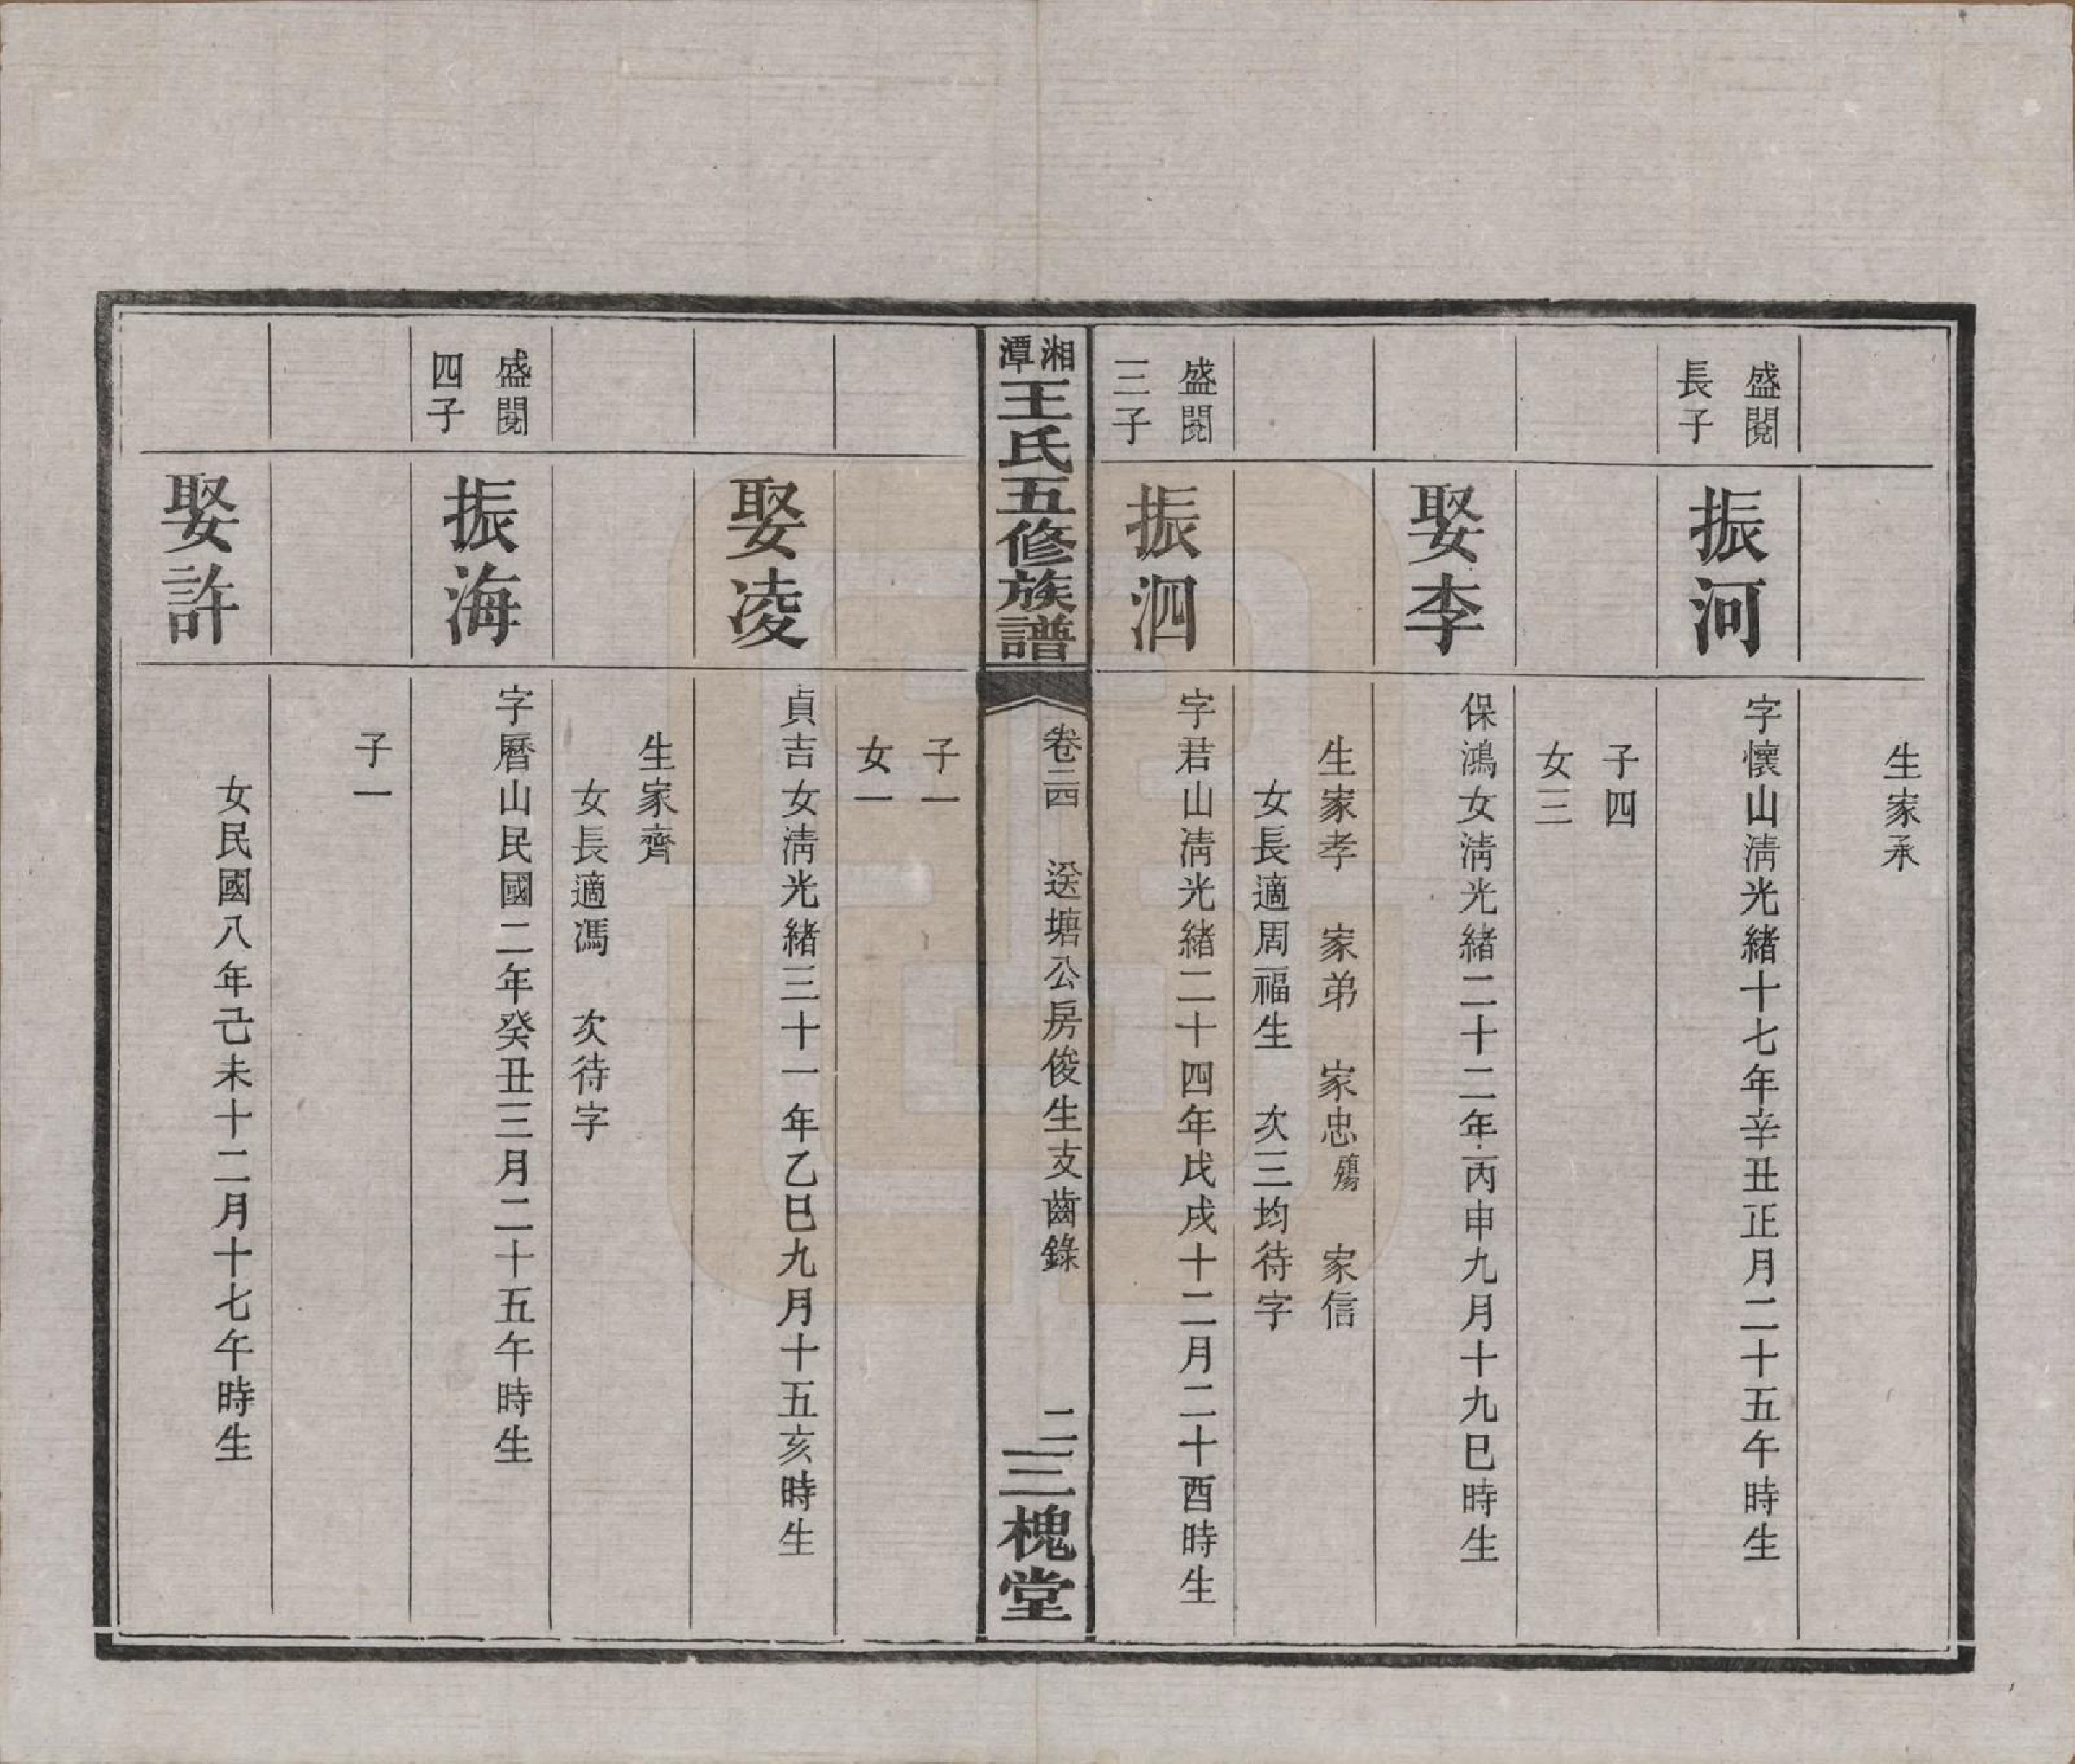 生家承
盛閱
長子
振河
字懷山淸光緒十七年辛丑正月二十五午時生
子四
女三
娶李
保鴻女淸光緒二十二年丙申九月十九巳時生
生家孝 家弟 家忠殤 家信
女長適周福生 次三均待字
盛閱
三子
振泗
字君山淸光緒二十四年戊戌十二月二十酉時生
湘潭
王氏五修族譜
卷二四 送塘公房俊生支齒錄 二
三槐堂
子一
女一
娶凌
貞吉女淸光緒三十一年乙巳九月十五亥時生
生家齊
女長適馮 次待字
盛閱
四子
振海
字曆山民國二年癸丑三月二十五午時生
子一
娶許
女民國八年己未十二月十七午時生